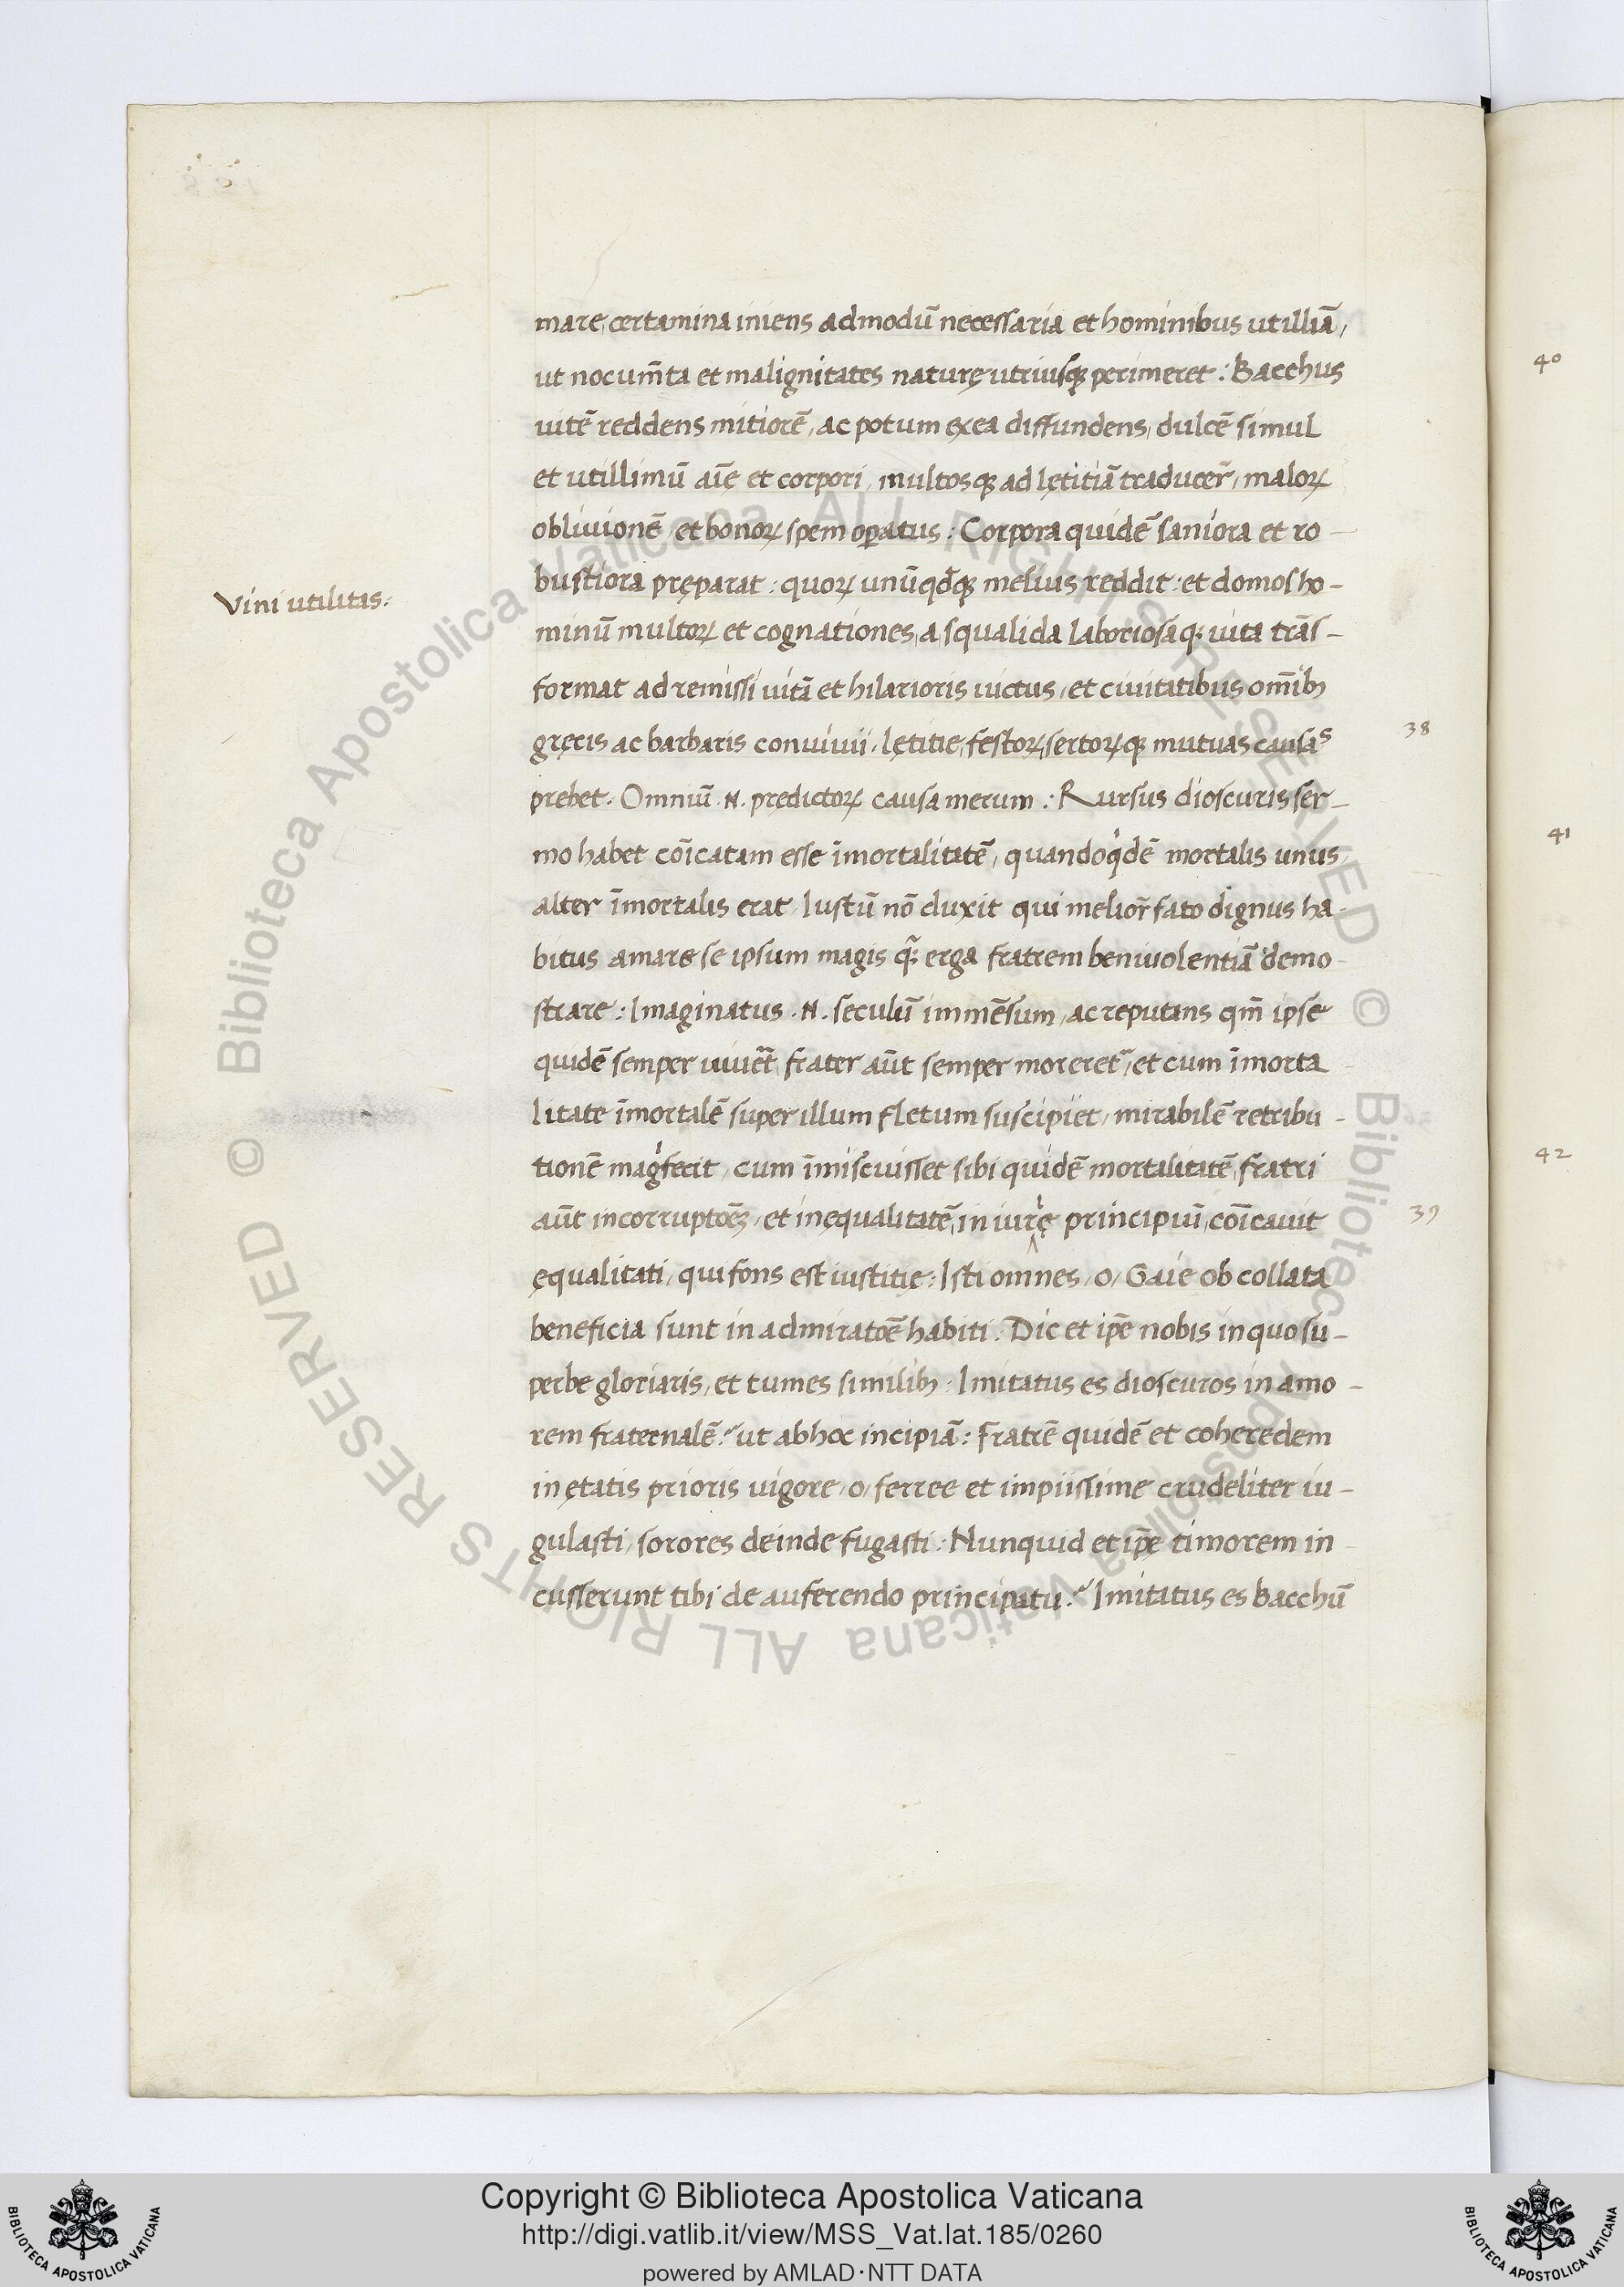 mare, certamina iniens admodū necessaria et hominibus utilliā,
ut nocum̄ta et malignitates naturę utriusq; perimeret: Bacchus
uitē reddens mitiorē, ac potum ex ea diffundens, dulcē simul
et utillimū aīę et corpori, multosq; ad lętitiā traducer̄, maloꝝ
obliuionē, et bonoꝝ spem oꝑatus: Corpora quidē saniora et ro-
bustiora pręparat: quoꝝ unūqdq; melius reddit: et domos ho-
Vini utilitas:
minū multoꝝ et cognationes, a squalida laboriosaq; uita trās-
format ad remissi uitā et hilarioris uictus, et ciuitatibus om̄ib;
gręcis ac barbaris conuiuii, lętitie, festoꝝ, sertoꝝq; mutuas causas
38
prebet. Omniū .N. prędictoꝝ causa merum: Rursus dioscuris ser-
mo habet cōicatam esse īmortalitatē, quandoqͥdē mortalis unus,
alter īmortalis erat Iustū nō duxit qui melior̄ fato dignus ha-
bitus amare se ipsum magis q̄ erga fratrem beniuolentiā demo-
strare: Imaginatus .N. seculū immēsum, ac reputans qm̄ ipse
quidē semper uiuēt, frater aūt semper moreret᷑, et cum īmorta
litate īmortalē super illum fletum suscipiet, mirabilē retribu-
tionē magͥfecit, cum īmiscuisset sibi quidē mortalitatē, fratri
aūt incorruptōēʒ, et inęqualitatē, in iur̓ę principiū, cōicauit
39
ęqualitati, qui fons est iustitię: Isti omnes, o, Gaie ob collata
beneficia sunt in admiratōē habiti: Dic et ip̄e nobis in quo su-
perbe gloriaris, et tumes similib;: Imitatus es dioscuros in amo-
rem fraternalē? ut ab hoc incipiā: Fratrē quidē et coheredem
in ętatis prioris uigore, o, ferree et impiissime crudeliter iu-
gulasti, sorores deinde fugasti: Nunquid et ip̄ę timorem in
cusserunt tibi de auferendo principatu? Imitatus es Bacchū
40
41
42
Copyright © Biblioteca Apostolica Vaticana
http://digi.vatlib.it/view/MSS_Vat.lat.185/0260
powered by AMLAD·NTT DATA
© Biblioteca Apostolica Vaticana ALL RIGHTS RESERVED © Biblioteca Apostolica Vaticana ALL RIGHTS RESERVED
BIBLIOTECA APOSTOLICA VATICANA
BIBLIOTECA APOSTOLICA VATICANA